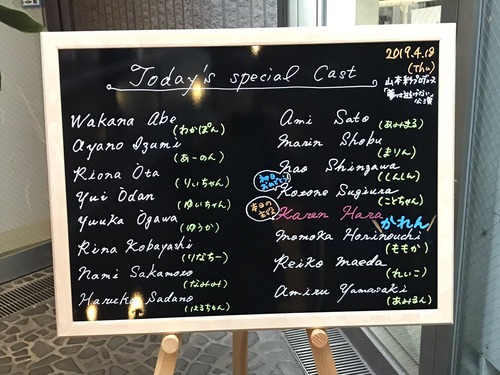 2019.4.18
(Thu)
Today's special Cast
公演
Wakana Abe
(わかぽん)
Ayano Izumi
(あーのん)
Riona Ōta
(りぃちゃん)
Yui Ōdan
(ゆいちゃん)
Yuuka Ogawa
(ゆうか)
Rina Kobayashi
(りなちー)
Nami Sakamoto
(なみみ)
Haruka Sadano
(はるちゃん)
Ami Sato
(あみまる)
Marin Shobu
(まりん)
Nao Shingawa
(しんしん)
Kotone Sugiura
(ことちゃん)
初日
おめでとう!
本日の
主役
Karen Hara
かれん
Momoka Horinouchi
(ももか)
Reiko Maeda
(れいこ)
Amiru Yamasaki
(あみるん)